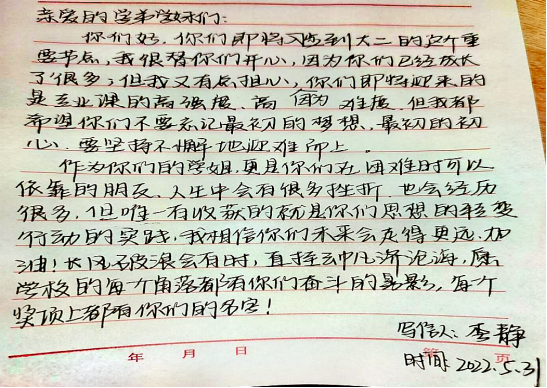 亲爱的学弟学妹们:
你们好,你们即将迈到大二的这个重
要节点,我很替你们开心,因为你们已经成长
了很多,但我又有点担心,你们即将迎来的
是专业课的高强度、高难度,但我都
希望你们不要忘记最初的梦想,最初的初
心,要坚持不懈地迎难而上。
作为你们的学姐,更是你们在困难时可以
依靠的朋友,人生中会有很多挫折,也会经历
很多,但唯一有收获的就是你们思想的转变
行动的实践,我相信你们未来会走得更远,加
油!长风破浪会有时,直挂云帆济沧海,愿
学校的每个角落都有你们奋斗的身影,每个
奖项上都有你们的名字!
写信人:李静
年 月 日 第 页
时间:2022.5.31